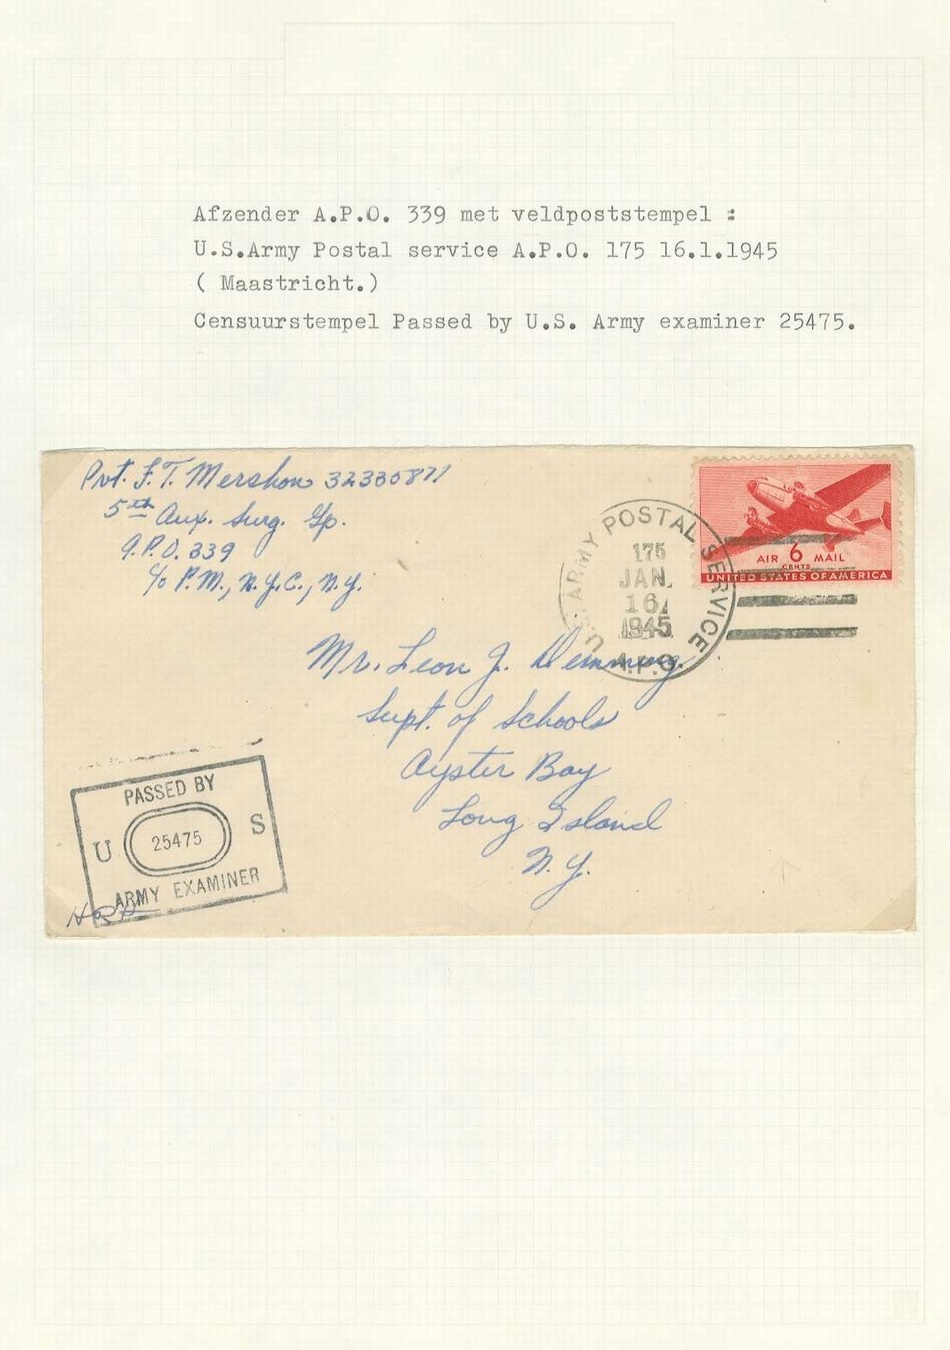 Afzender A.P.O. 339 met veldpoststempel :
U.S.Army Postal service A.P.O. 175 16.1.1945
( Maastricht.)
Censuurstempel Passed by U.S. Army examiner 25475.
Pvt. F.T. Mershon 32330871
5th Aux. Surg. Gp.
A.P.O. 339
c/o P.M., N.Y.C., N.Y.
U.S. ARMY POSTAL SERVICE
175
JAN.
16
1945
A.P.O.
AIR 6 MAIL
CENTS
UNITED STATES OF AMERICA
Mr. Leon J. Demming
Supt. of Schools
Oyster Bay
Long Island
N.Y.
PASSED BY
U 25475 S
ARMY EXAMINER